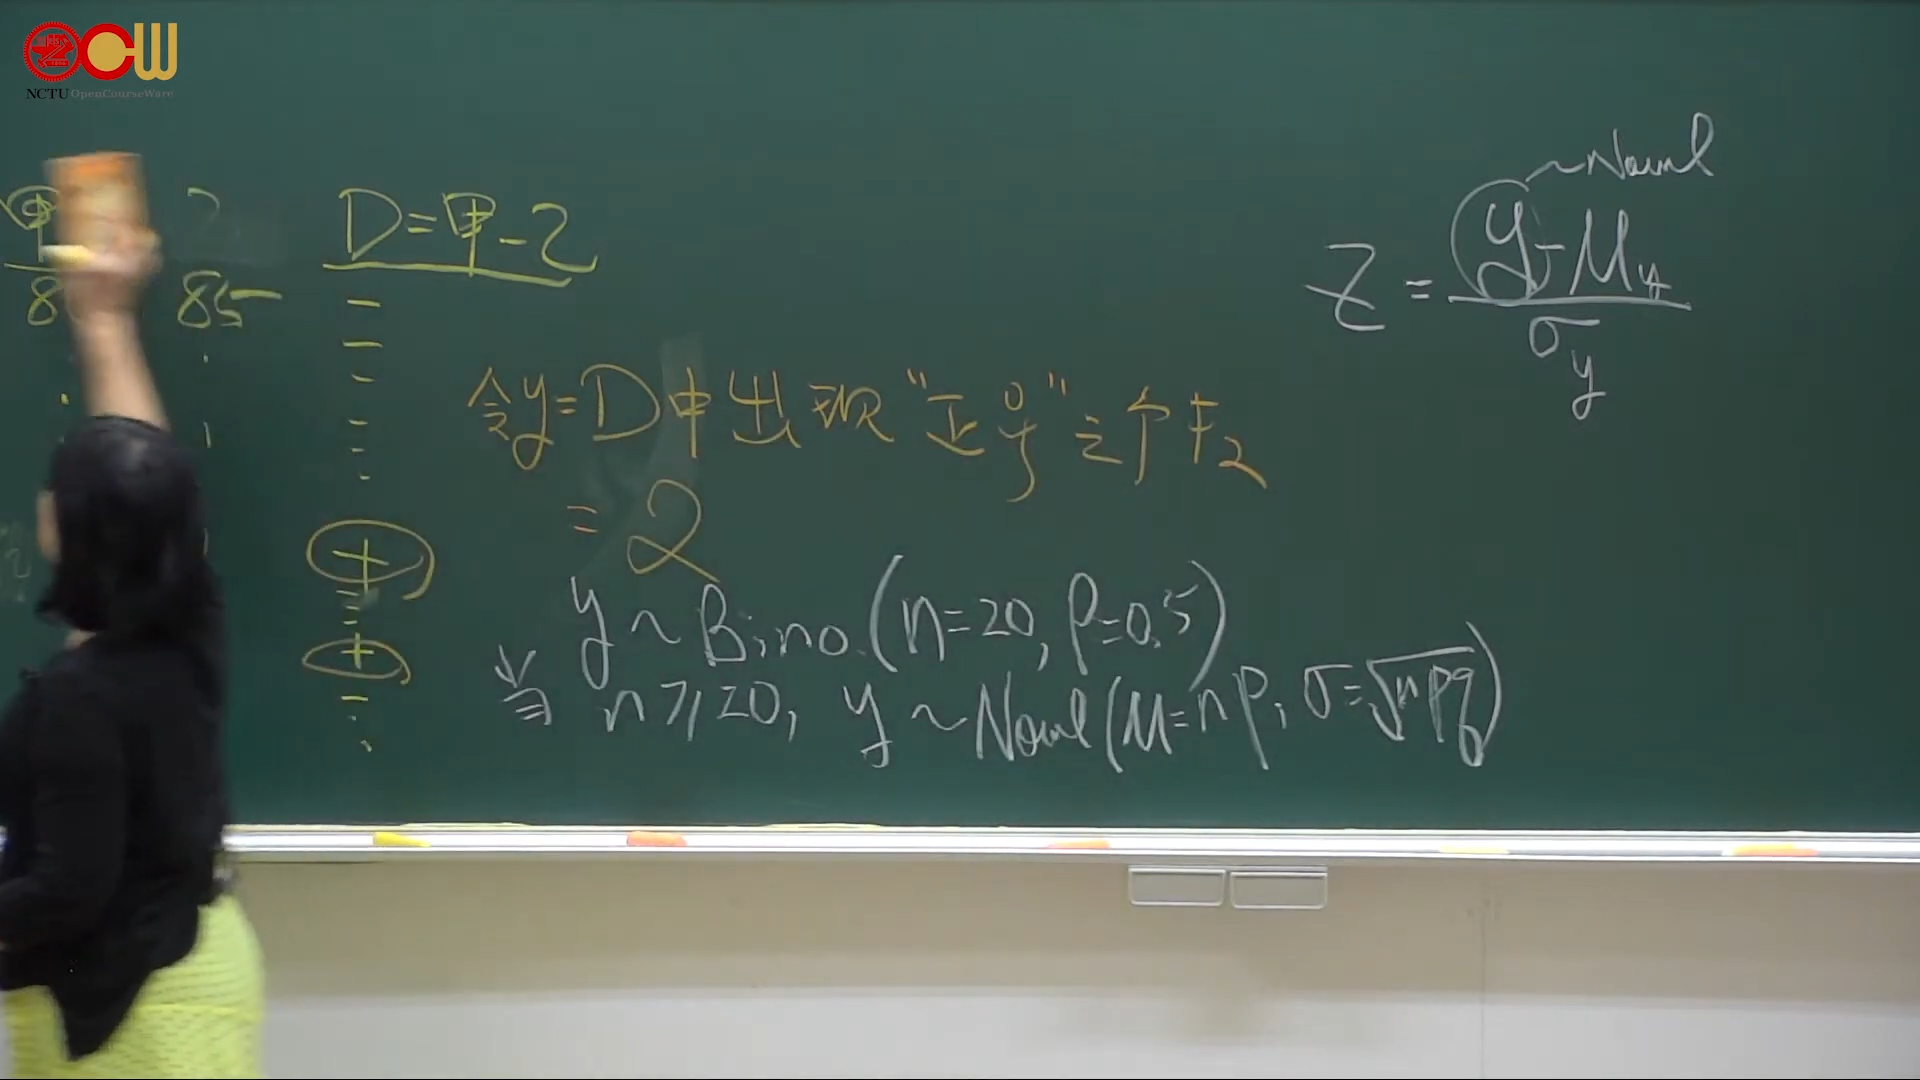 NCTU OpenCourseWare
甲 乙 D=甲-乙
8 85 -
-
-
-
-
+
+
-
令y=D中出現"正号"之个数
=2
y~Bino.(n=20, p=0.5)
當 n≥20, y~Normal(μ=np, σ=√npq)
~Normal
Z = (y-μy)/σy